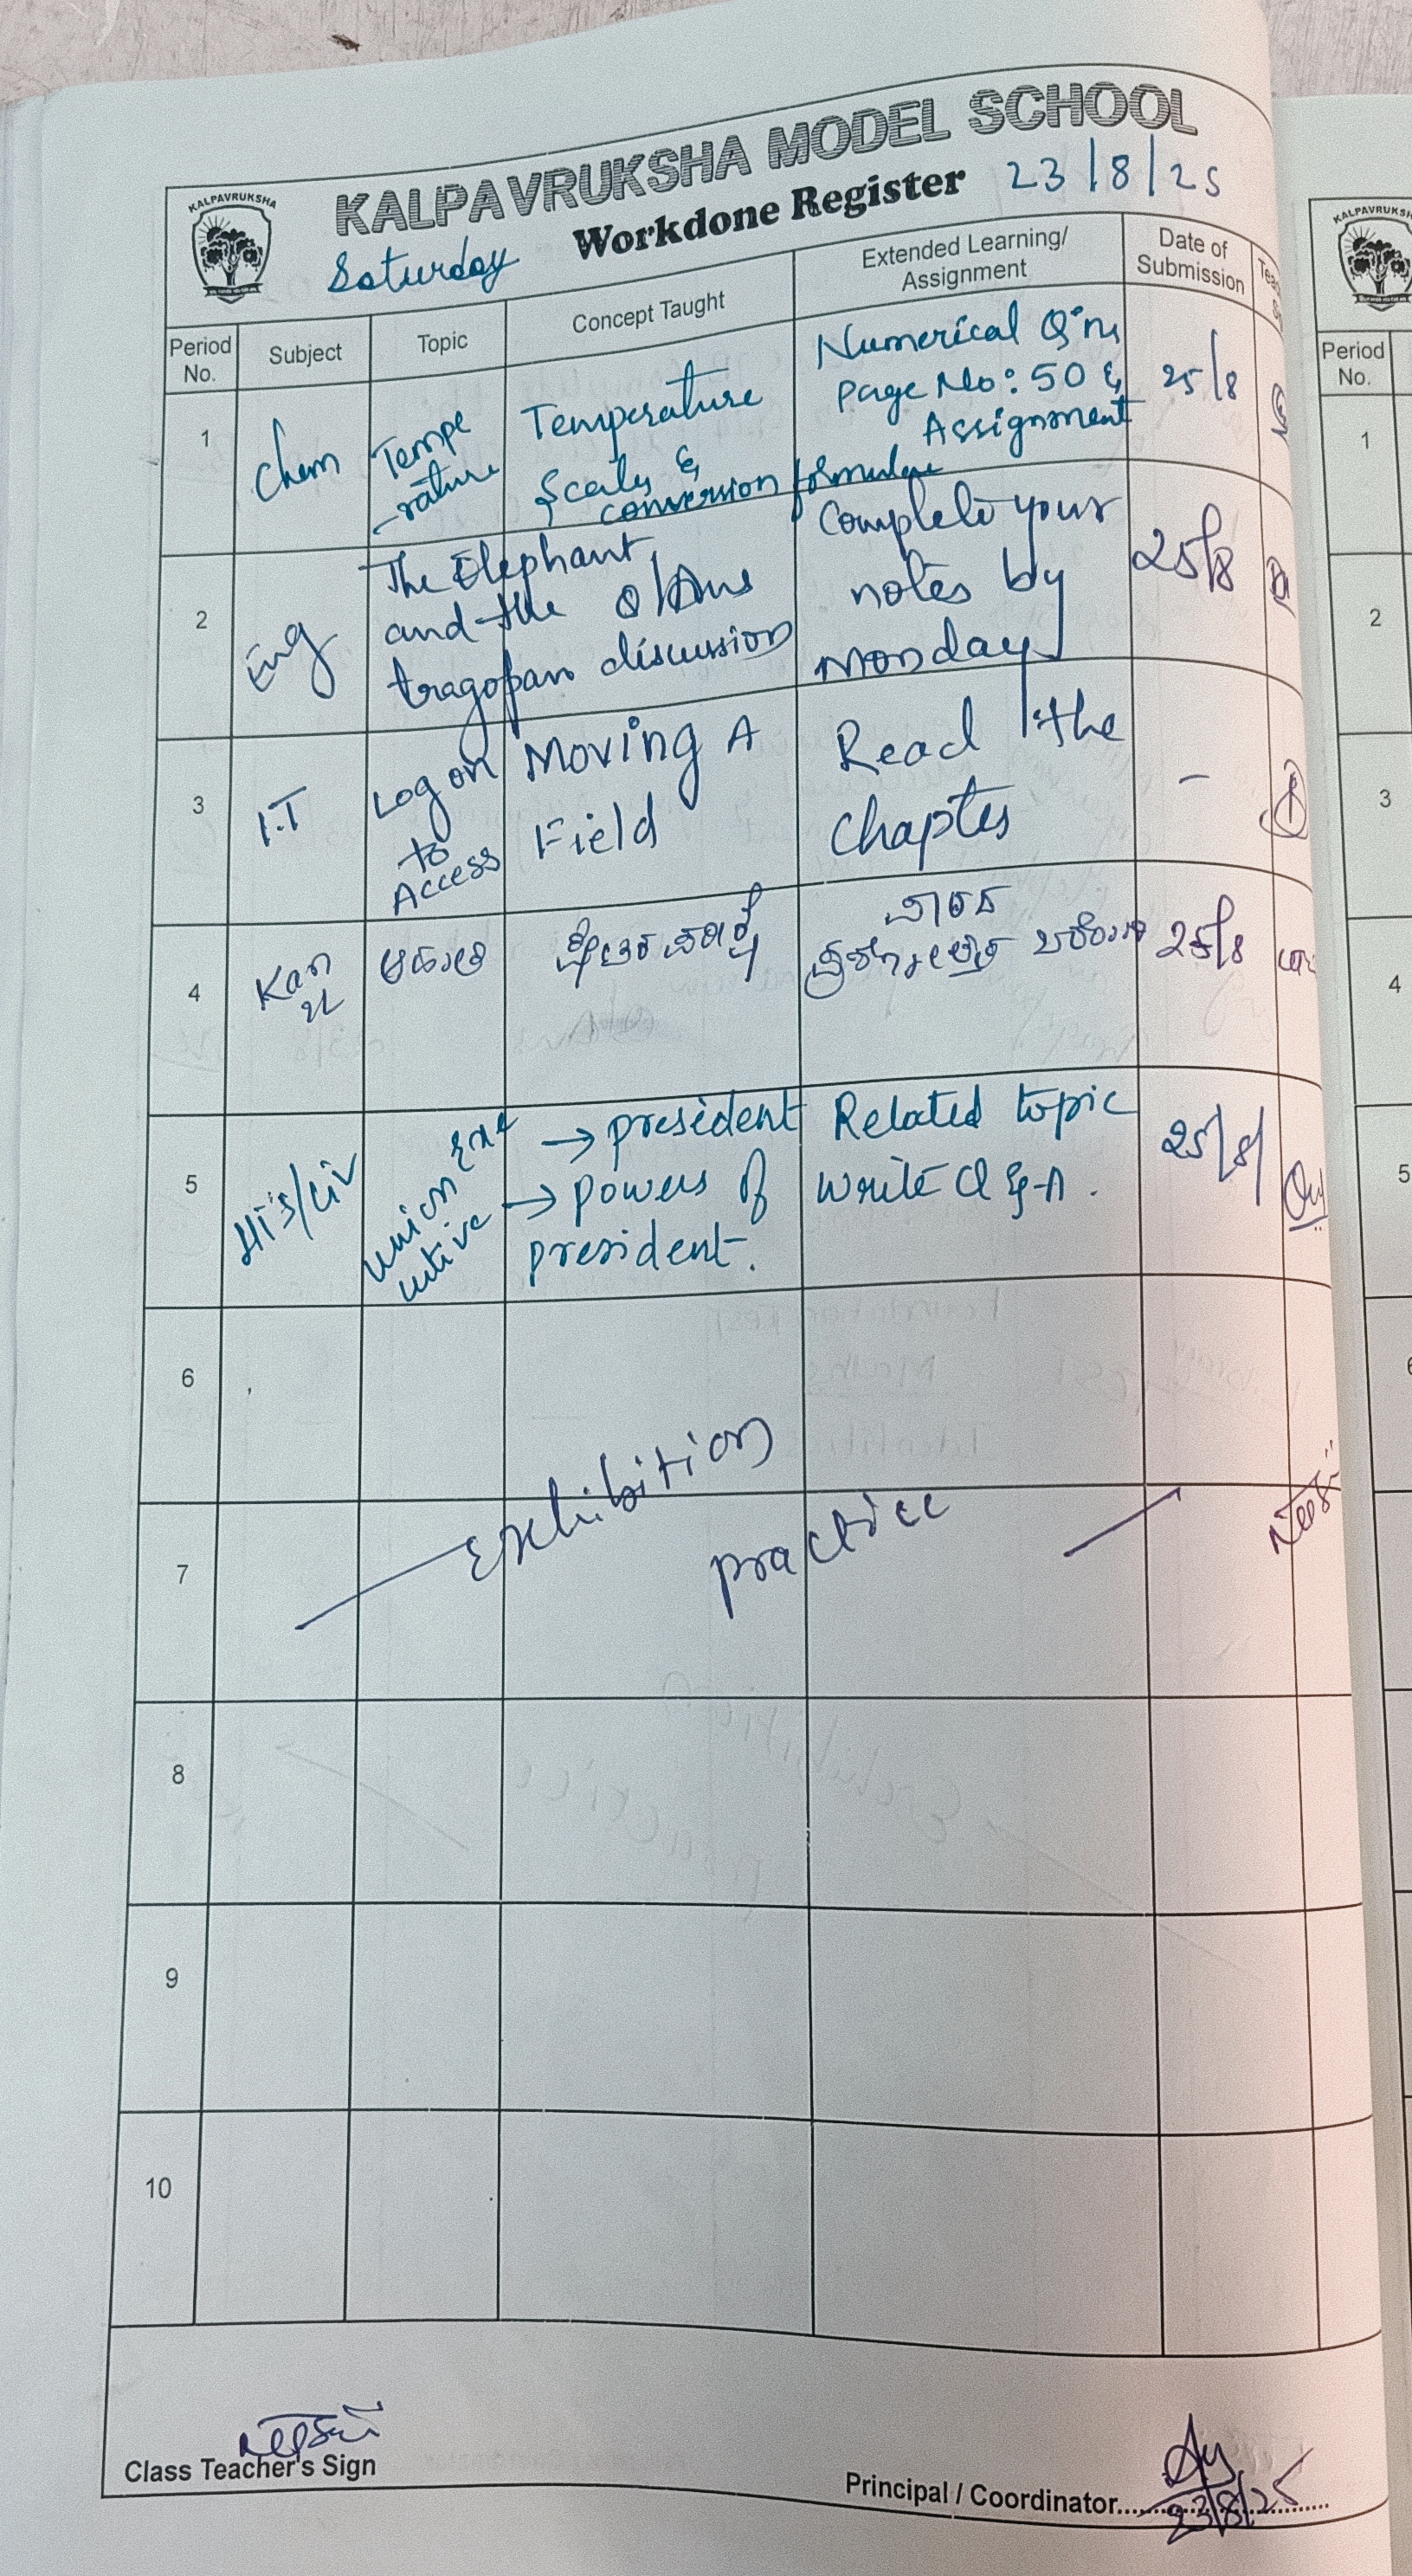 KALPAVRUKSHA MODEL SCHOOL
KALPAVRUKSHA
Saturday Workdone Register 23/8/25
Period No. Subject Topic Concept Taught Extended Learning/ Assignment Date of Submission
1 Chem Tempe -rature Temperature Scales & conversion formulae Numerical Q'ns Page No: 50 & Assignment 25/8
2 Eng The Elephant and the tragopan discussion Complete your notes by Monday 25/8
3 I.T Log on to Access Moving A Field Read the Chapter -
4 Kan 25/8
5 His/Civ Union Exe cutive → president → Powers of president. Related topic write Q & A. 25/8/
6
Exhibition
7
practice
8
9
10
Class Teacher's Sign
Principal / Coordinator
23/8/25
KALPAVRUKSH
Period No.
1
2
3
4
5